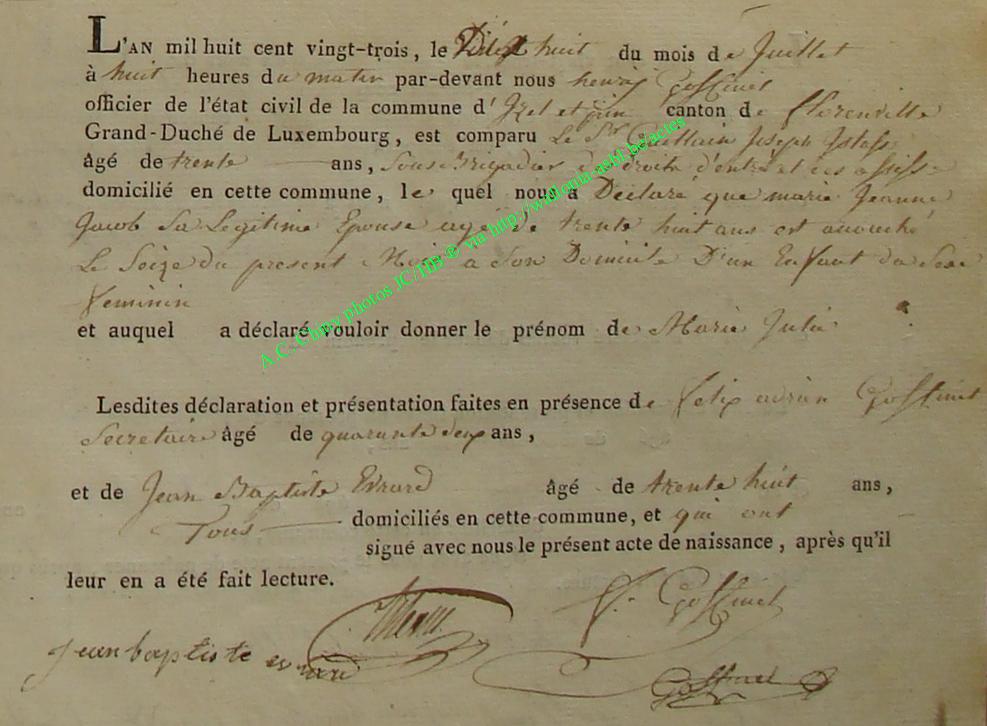 L'AN mil huit cent vingt-trois, le Dix huit du mois de Juillet
à huit heures du matin par-devant nous henry Goffinet
officier de l'état civil de la commune d'Izel et pin canton de florenville
Grand-Duché de Luxembourg, est comparu Le Sr. Joseph
âgé de trente ans, Sous Brigadier droits d'entré et
domicilié en cette commune, le quel nous a Déclaré que marie Jeanne
Jacob Sa Legitime Epouse agé de trente huit ans est accouché
Le Seize du present Mois a Son Domicile D'un Enfant du Sexe
feminin
et auquel a déclaré vouloir donner le prénom de Marie Julie
Lesdites déclaration et présentation faites en présence de felix adrien Goffinet
Secretaire âgé de quarante deux ans,
et de Jean Baptiste Evrard âgé de trente huit ans,
Tous domiciliés en cette commune, et qui ont
signé avec nous le présent acte de naissance, après qu'il
leur en a été fait lecture.
f. Goffinet
jean baptiste evrard
Goffinet
A.C. Chiny photos JC/HB © via http://wallonia-asbl.be/actes